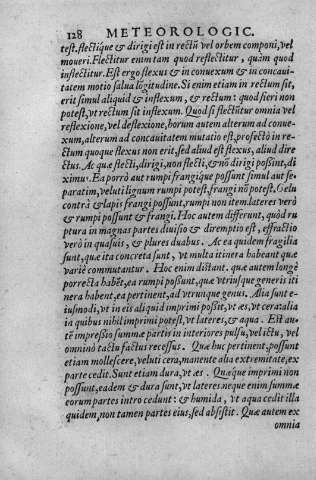 128 METEOROLOGIC.
test. flectiq́ue & dirigi est in rectũ vel orbem componi, vel
moueri. Flectitur enim tam quod reflectitur, quàm quod
inflectitur. Est ergo flexus & in conuexum & in concaui-
tatem motio salua lõgitudine. Si enim etiam in rectum sit,
erit simul aliquid & inflexum, & rectum: quod fieri non
potest, vt rectum sit inflexum. Quod si flectũtur omnia vel
reflexione, vel deflexione, horum autem alterum ad conue-
xum, alterum ad concauitatem mutatio est, profectò in re-
ctum quoque flexus non erit, sed aliud est flexus, aliud dire
ctus. Ac quæ flecti, dirigi, non flecti, & nõ dirigi possint, di
ximus. Ea porrò aut rumpi frangiq́ue possunt simul aut se-
paratim, veluti lignum rumpi potest, frangi nõ potest. Gelu
contrà & lapis frangi possunt, rumpi non item. lateres verò
& rumpi possunt & frangi. Hoc autem differunt, quòd ru
ptura in magnas partes diuisio & diremptio est, effractio
verò in quasuis, & plures duabus. Ac ea quidem fragilia
sunt, quæ ita concreta sunt, vt multa itinera habeant quæ
variè commutantur. Hoc enim distant. quæ autem longè
porrecta habẽt, ea rumpi possunt, quæ vtriusque generis iti
nera habent, ea pertinent, ad vtrunque genus. Alia sunt e-
iusmodi, vt in eis aliquid imprimi possit, vt æs, vt cera: alia
in quibus nihil imprimi potest, vt lateres, & aqua. Est au-
tẽ impressio summæ partis in interiores pulsu, vel ictu, vel
omninò tactu factus recessus. Quæ huc pertinent, possunt
etiam mollescere, veluti cera, manente alia extremitate, ex
parte cedit. Sunt etiam dura, vt æs. Quæque imprimi non
possunt, eadem & dura sunt, vt lateres. neque enim summæ
eorum partes intro cedunt: & humida, vt aqua cedit illa
quidem, non tamen partes eius, sed absistit. Quæ autem ex
omnia